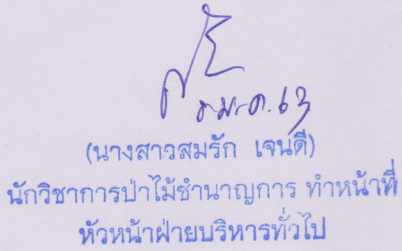 ม.ค. 63
(นางสาวสมรัก เจนดี)
นักวิชาการป่าไม้ชำนาญการ ทำหน้าที่
หัวหน้าฝ่ายบริหารทั่วไป